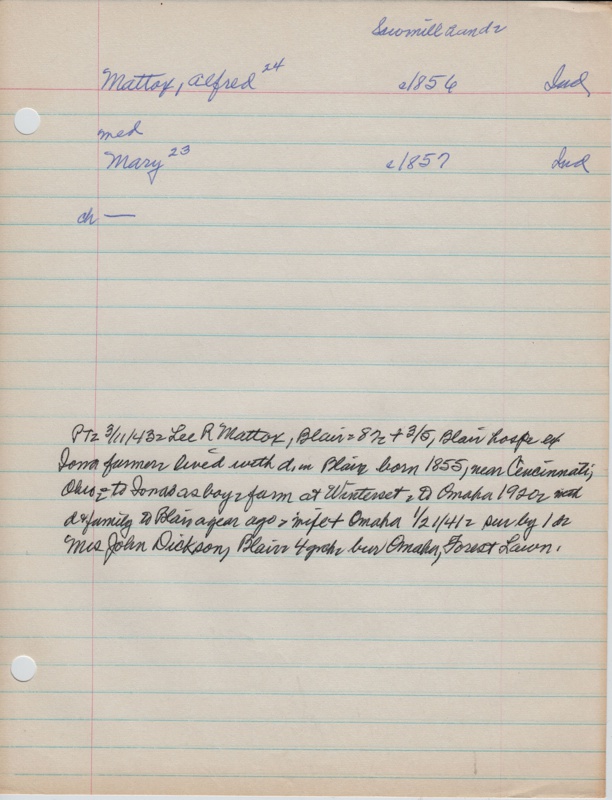 Sawmill
Mattox, Alfred 24 c1856 Ind
med
Mary 23 c1857 Ind
ch —
PT= 3/11/43= Lee R Mattox, Blair= 87= + 3/5, Blair hosp= ex
Iowa farmer= lived with d in Blair= born 1855, near Cincinnati,
Ohio= to Iowa as boy= farm at Winterset= to Omaha 1920=
d+family to Blair a year ago= wife + Omaha 1/21/41= sur by 1 d=
Mrs John Dickson, Blair= 4 grch= bur Omaha, Forest Lawn.